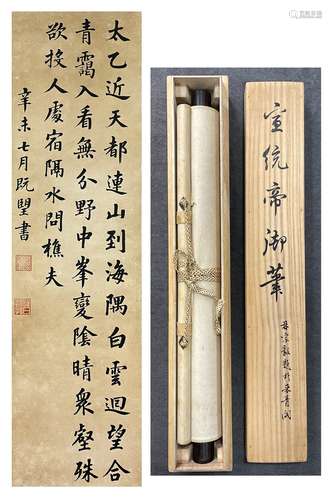 太乙近天都連山到海隅白雲迴望合
青靄入看無分野中峯變陰晴衆壑殊
欲投人處宿隔水問樵夫
辛未七月既望書
宣統帝御筆